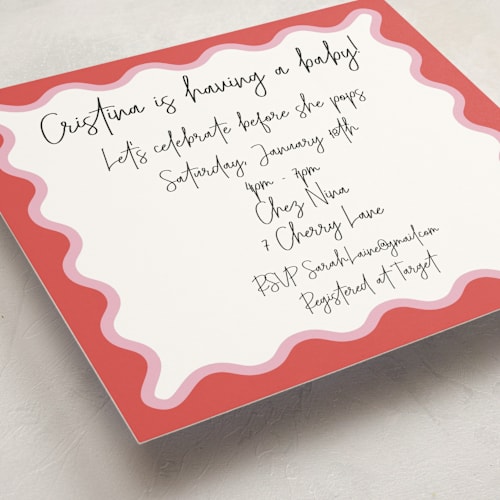 Cristina is having a baby!
Let's celebrate before she pops
Saturday, January 18th
4pm - 7pm
Chez Nina
7 Cherry Lane
RSVP SarahLaine@gmail.com
Registered at Target